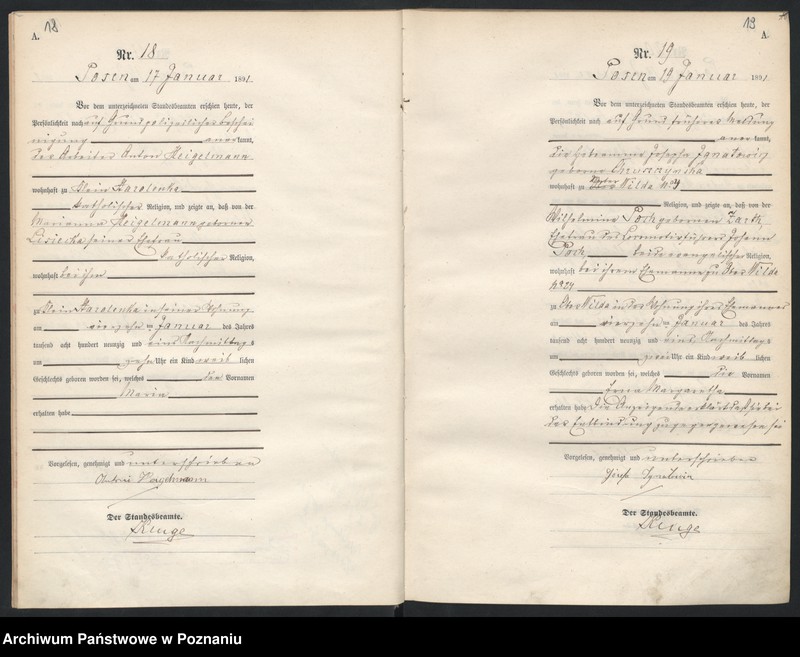 18
A.
Nr. 18
Posen am 17 Januar 1891
Vor dem unterzeichneten Standesbeamten erschien heute, der
Persönlichkeit nach auf Grund polizeilicher Beschei
nigung anerkannt,
der Arbeiter Anton Heigelmann
wohnhaft zu Klein Starolenka
katholischer Religion, und zeigte an, daß von der
Marianna Heigelmann geborenen
Lisiecka seiner Ehefrau
katholischer Religion,
wohnhaft bei ihm
zu Klein Starolenka in seiner Wohnung
am vierzehn ten Januar des Jahres
tausend acht hundert neunzig und eins Nachmittags
um zehn Uhr ein Kind weib lichen
Geschlechts geboren worden sei, welches den Vornamen
Maria
erhalten habe
Vorgelesen, genehmigt und unterschrieben
Heigelmann
Der Standesbeamte.
Kluge
19
A.
Nr. 19
Posen am 19 Januar 1891
Vor dem unterzeichneten Standesbeamten erschien heute, der
Persönlichkeit nach auf Grund früherer Meldung
anerkannt,
die Hebamme Josepha Ignatowicz
geborne
wohnhaft zu Wilda
Religion, und zeigte an, daß von der
Wilhelmine Posch gebornen Zarth
Ehefrau des Locomotivführers Johann
Posch beide evangelischer Religion,
wohnhaft bei ihrem Ehemanne zu Ober Wilda
zu Ober Wilda in der Wohnung ihres Ehemannes
am vierzehn ten Januar des Jahres
tausend acht hundert neunzig und eins Nachmittags
um zwei Uhr ein Kind weib lichen
Geschlechts geboren worden sei, welches die Vornamen
Erna Margaretha
erhalten habe. Die Anzeigende erklärt daß sie bei
der Entbindung zugegen gewesen sei
Vorgelesen, genehmigt und unterschrieben
Der Standesbeamte.
Kluge
Archiwum Państwowe w Poznaniu